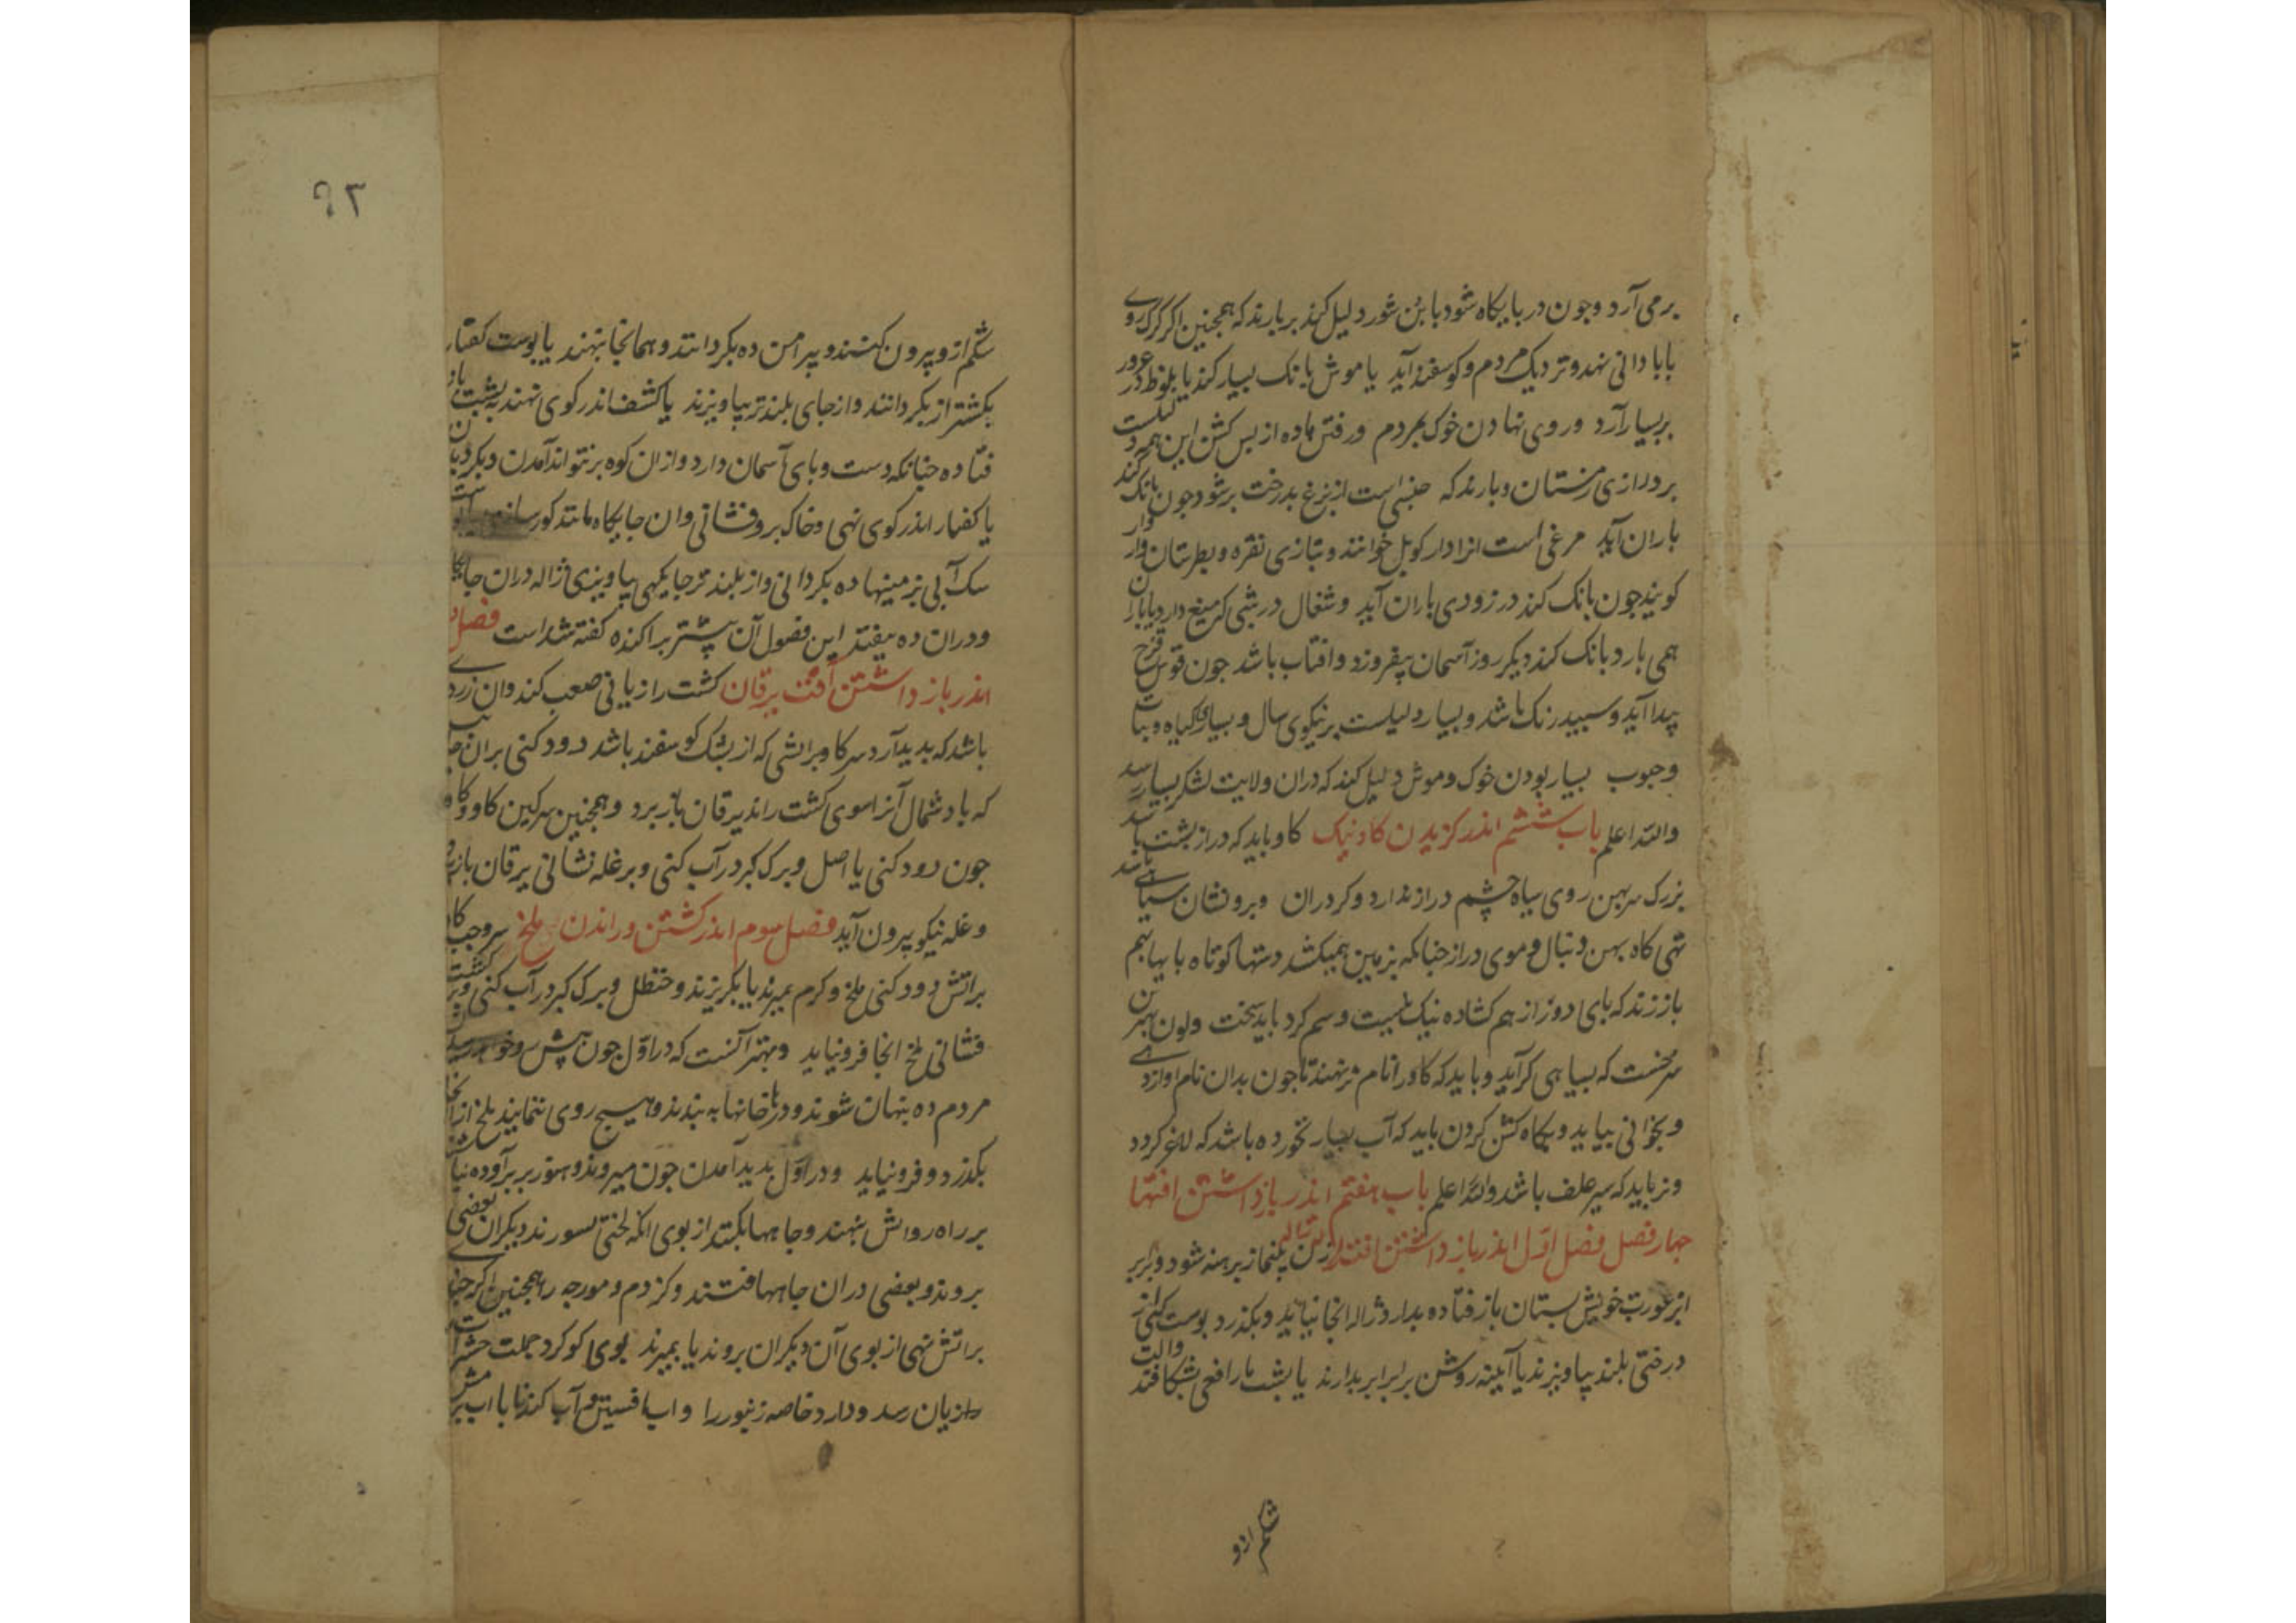 برمی آرد وجون در بایکاه شود بابن شور دلیل کند بر بارندکه همجنین اکر کرک روی
بابادانی نهد و نزدیک مردم و کوسفند آید یا موش بانک بسیار کند یا بلوط
بر بسیار آرد و روی نهادن خوک بمردم و رفتن ماده از بس کشن این همه
بر درازی زمستان و بارندکه جنسی است از بزغ بدرخت برشود جون بانک کند
باران آید مرغی است انرا دارکوبل خوانند و بتازی نقره و بطبرستان
کویند جون بانک کند در زودی باران آید و شغال در شبی که میغ دارد یا باران
همی بارد بانک کند دیکر روز آسمان بیفروزد و افتاب باشد جون قوس قزح
پیدا آید و سبید رنک باشد و بسیار دلیلست بر نیکوی سال و بسیاری کیاه و نبات
وحبوب بسیار بودن خوک و موش دلیل کند که دران ولایت لشکر بسیار رسد
والله اعلم باب ششم اندر کزیدن کاو نیک کاو باید که دراز بشت باشد
بزرک سر بهن روی سیاه چشم دراز ندارد و کرد ران وبرو نشان سیاهی باشد
تهی کاه بهن دنبال و موی دراز جنانکه بزمین همیکشد دستها کوتاه بایها بهم
باز زند که بای دور از هم کشاده نیک نیست و سم کرد باید سخت ولون بهترین
سرخست که بسیاهی کراید و باید که کاو را نام برنهند تا جون بدان نام اواز دهی
و بخوانی بیاید و بیکاه کشن کردن باید که آب بسیار نخورده باشد که لاغر کردد
و نر باید که سیر علف باشد والله اعلم باب هفتم اندر بازداشتن افتها
جهار فصل فصل اول اندر بازداشتن افت ژاله زن بی نماز برهنه شود و برابر
ابر عورت خویش بستان باز فتاده بدارد ژاله انجا نیاید و بکذرد بوست کفتار
درختی بلند بیاویزند یا آیینه روشن برابر ابر بدارند یا بشت مار افعی بشکافند
شکم ازو
٩٢
شکم ازو بیرون کنند و پیرامن ده بکردانند و همانجا بنهند یا بوست کفتار
بکشتزار بکردانند و از جای بلندتر بیاویزند یا کشف اندر کوی نهند بشت باز
فتاده جنانکه دست و بای بآسمان دارد و ازان کوه برنتواند آمدن دیکر
یا کفتار اندر کوی نهی و خاک برو فشانی وان جایکاه مانند کور
سک آبی بزمینها ده بکردانی و از بلندتر جایکهی بیاویزی ژاله دران جایکاه
ودران ده نیفتد این فصول آن بیشتر براکنده کفته شداست فصل
اندر بازداشتن آفت یرقان کشت را زیانی صعب کند وان زردی
باشد که بدید آرد سر کاو براتشی که از بشک کوسفند باشد دود کنی بران
که باد شمال آنرا سوی کشت راند یرقان باز برد وهمجنین سرکین کاو
جون دود کنی یا اصل وبرک کبر در آب کنی و بر غله فشانی یرقان باز
وغله نیکو بیرون آید فصل سوم اندر کشتن وراندن ملخ سرو
براتش دود کنی ملخ و کرم بمیرند یا بکریزند و حنظل و برک کبر در آب کنی و بر کشت
فشانی ملخ انجا فرونیاید وبهتر آنست که در اول جون پیش رو
مردم ده بنهان شوند ودر خانها به بندند و هیج روی ننمایند ملخ از انجا
بکذرد و فرونیاید ودر اول بدید آمدن جون میروند و هنوز بر برآورده نباشند
بر راه روانش بنهند و جاهها بکنند از بوی انکه لختی بسوزند دیکران بعضی
بروند و بعضی دران جاهها افتند وکزدم و مورجه را همجنین اکر
براتش نهی از بوی آن دیکران بروند یا بمیرند بوی کوکرد جملت حشرات
را زیان رسد ودارد خاصه زنبور را واب افسنتین وآب کندنا با اب